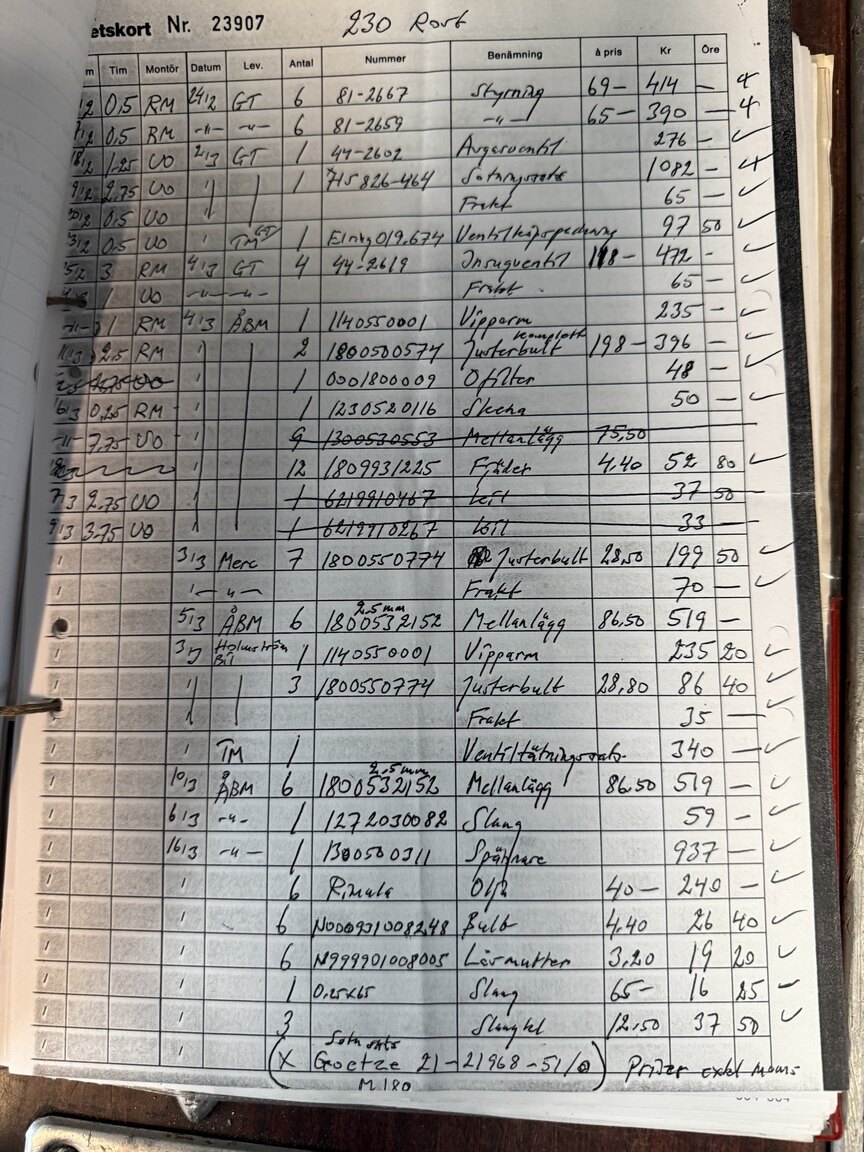 etskort Nr. 23907 230 Rort
m Tim Montör Datum Lev. Antal Nummer Benämning à pris Kr Öre
0,5 RM 24/2 GT 6 81-2667 Styrning 69- 414 -
0,5 RM -"- -"- 6 81-2659 -"- 65- 390 -
1,25 UO 2/3 GT 1 44-2602 Avgasventil 276 -
2,75 UO 1 715826-464 Sotningssats 1082 -
0,5 UO Frakt 65 -
0,5 UO TM 1 019.674 Ventilkåpspackning 97 50
3 RM 4/3 GT 4 44-2619 Insugventil 118- 472 -
1 UO -"- -"- Frakt 65 -
-"- 1 RM 4/3 ÅBM 1 1140550001 Vipparm 235 -
2,5 RM 2 1800500574 Justerbult komplett 198- 396 -
UO 1 0001800009 Ofilter 48 -
0,25 RM 1 1230520116 50 -
-"- 7,75 UO 9 1300530553 Mellanlägg 75,50
12 1809931225 4,40 52 80
2,75 UO 1 6219910467 37 50
3,75 UO 1 6219910267 33 -
3/3 Merc 7 1800550774 Justerbult 28,50 199 50
-"- Frakt 70 -
5/3 ÅBM 6 1800532152 2,5mm Mellanlägg 86,50 519 -
Holmström Bil 1 1140550001 Vipparm 235 20
3 1800550774 Justerbult 28,80 86 40
Frakt 35 -
TM 1 Ventiltätningssats 340 -
10/3 ÅBM 6 1800532152 2,5mm Mellanlägg 86,50 519 -
6/3 -"- 1 1272030082 Slang 59 -
16/3 -"- 1 1300500311 Spännare 937 -
6 Rimula Olja 40- 240 -
6 N000931008248 Bult 4,40 26 40
6 N999901008005 Låsmutter 3,20 19 20
1 0,25x65 Slang 65- 16 25
3 Slangkl 12,50 37 50
(X Goetze 21-21968-51/0) Priser exkl moms
M180